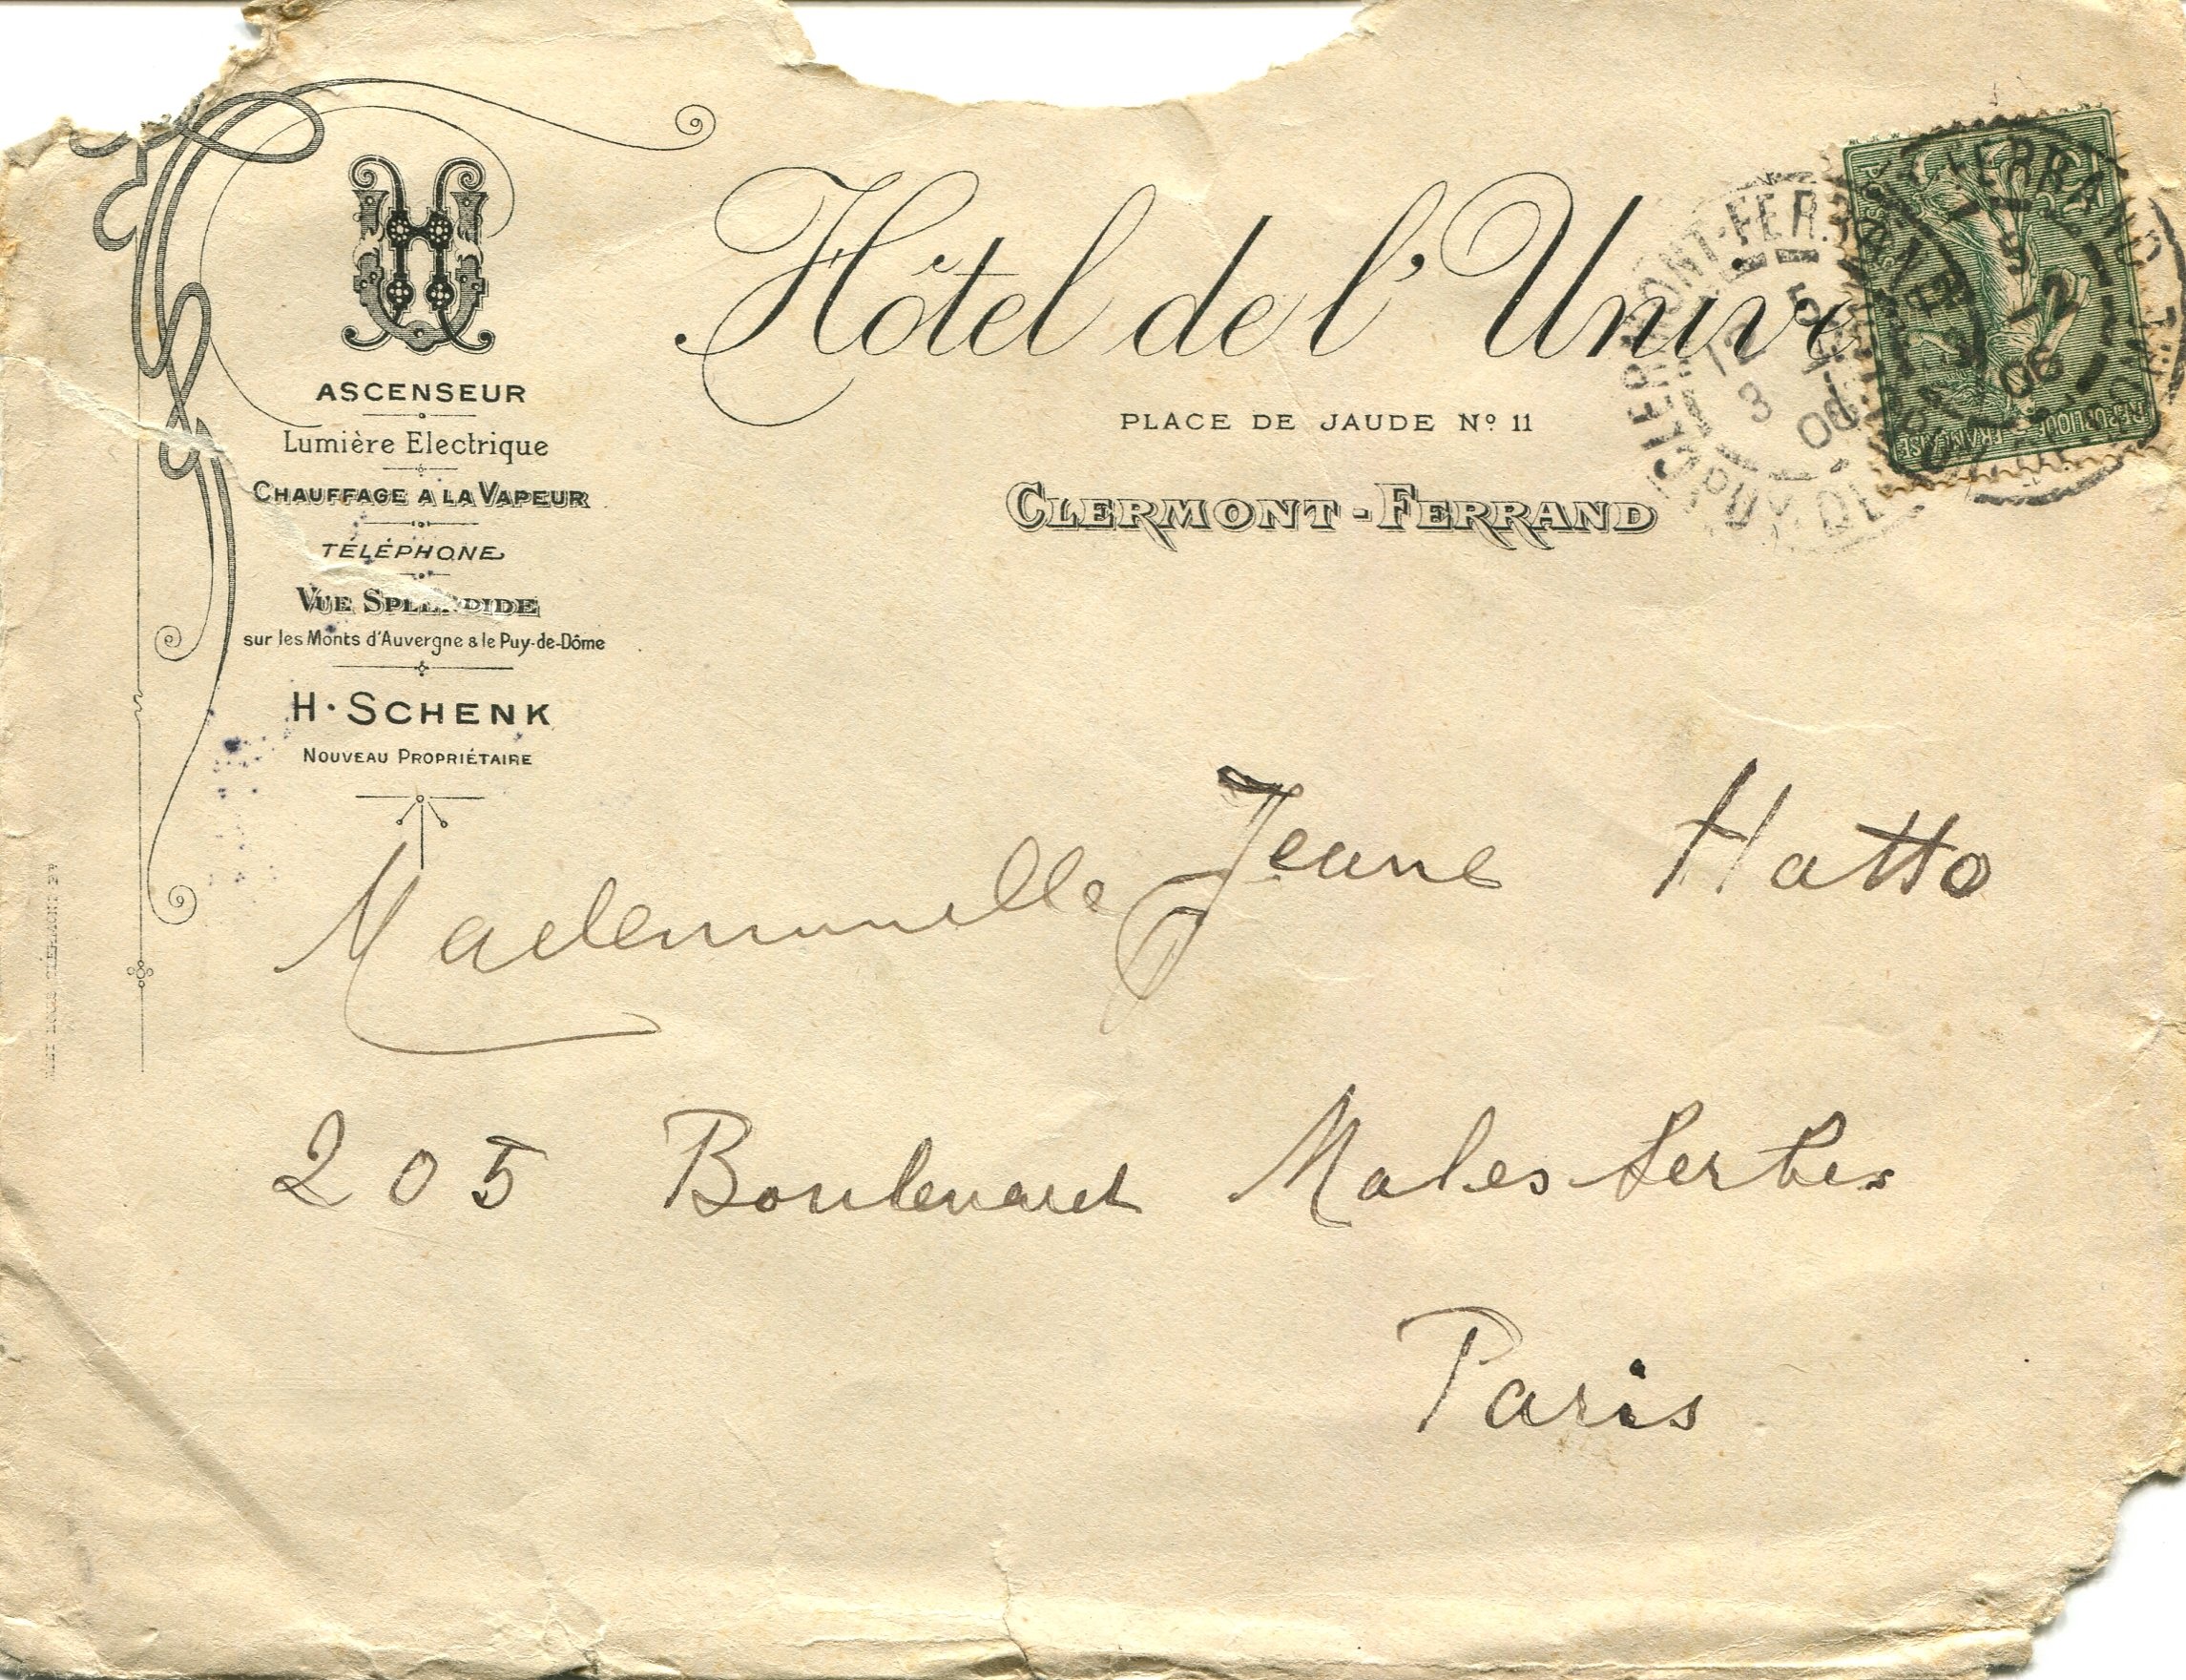 ASCENSEUR
Lumière Electrique
CHAUFFAGE A LA VAPEUR
TÉLÉPHONE
VUE SPLENDIDE
sur les Monts d'Auvergne & le Puy-de-Dôme
H. SCHENK
NOUVEAU PROPRIÉTAIRE
Hôtel de l'Unive
PLACE DE JAUDE Nº 11
CLERMONT-FERRAND
CLERMONT-FER
PUY DE
12
5
3
06
FERRAND
5
12
06
POSTES
REPUBLIQUE FRANÇAISE
Mademoiselle Jeane Hatto
205 Boulevard Malesherbes
Paris